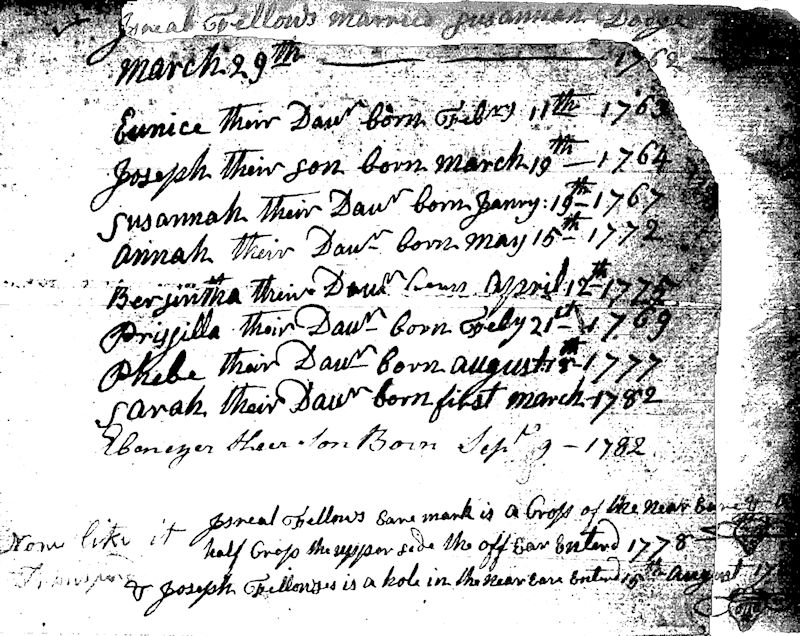 Isreal Fellows married Susannah Dodge
march 29th 1762
Eunice their Daur born Febry 11th 1763
Joseph their son born march 19th – 1764
Susannah their Daur born Janry: 19th – 1767
annah their Daur born may 15th – 1772
Bersintha their Daur born April 12th – 1775
Prissilla their Daur born Feby 21st 1769
Phebe their Daur born august th – 1777
Sarah their Daur born first march – 1782
Ebenezer Their Son Born Sept 9 – 1782
Isreal Fellows Eare mark is a Crop of the Near Eare &
None like it
half Crop the upper side the off Ear Enterd 1778
& Joseph Fellowses is a hole in the Near Eare Enterd 15th August